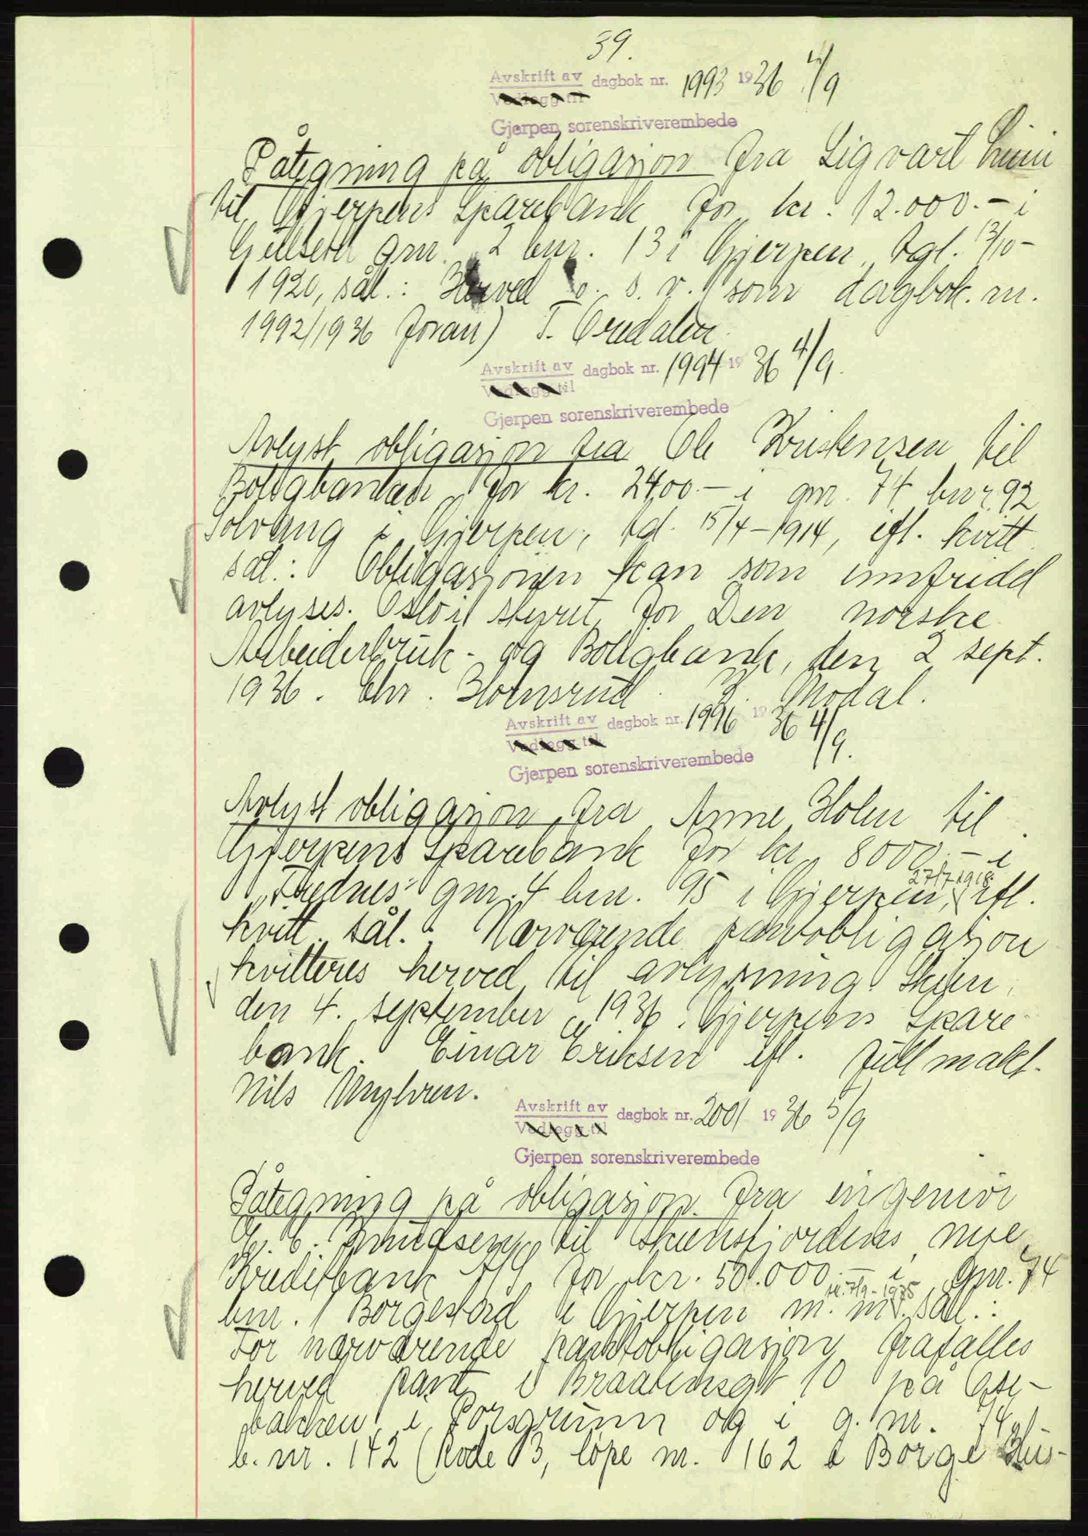 39.
Avskrift av dagbok nr. 1993 1936 4/9
Vedlegg til
Gjerpen sorenskriverembede
Påtegning på obligasjon fra Sigvart
til Gjerpens Sparebank for kr. 12.000.- i
gnr. 2 bnr. 13 i Gjerpen, tgl. 13/10-
1920, sål.: Herved o. s. v. (som dagbok nr.
1992/1936 foran) T.
Avskrift av dagbok nr. 1994 1936 4/9.
Vedlegg til
Gjerpen sorenskriverembede
Avlyst obligasjon fra Ole Kristensen til
Boligbanken for kr. 2400.- i gnr. 74 bnr. 92
Solvang i Gjerpen, td. 15/4-1914, efl. kvitt.
sål.: Obligasjonen kan som innfridd
avlyses. Oslo i styret for Den norske
Arbeiderbruk- og Boligbank, den 2 sept.
1936. Chr. Holmsrud. Modal.
Avskrift av dagbok nr. 1996 1936 4/9.
Vedlegg til
Gjerpen sorenskriverembede
Avlyst obligasjon fra Anne Holen til
Gjerpens Sparebank for kr. 8000.- i
27/7 1918
"Frednes" gnr. 4 bnr. 95 i Gjerpen, efl.
kvitt. sål.: Nærværende pantobligasjon
kvitteres herved til avlysning. Skien,
den 4. september 1936. Gjerpens Spare-
bank. Einar Eriksen efl. fullmakt.
Nils Myhren.
Avskrift av dagbok nr. 2001 1936 5/9
Vedlegg til
Gjerpen sorenskriverembede
Påtegning på obligasjon fra ingeniør
Knudsen til Skiensfjordens nye
Kreditbank A/S for kr. 50.000.- i gnr. 74
7/9-1935
bnr. 1 Borgestad i Gjerpen m. m. sål.:
For nærværende pantobligasjon frafalles
herved pant i 10 på Øse-
bakken i Porsgrunn og i g. nr. 74,
b. nr. 142 (Rode 3, løpe nr. 162 i Borge Hus-